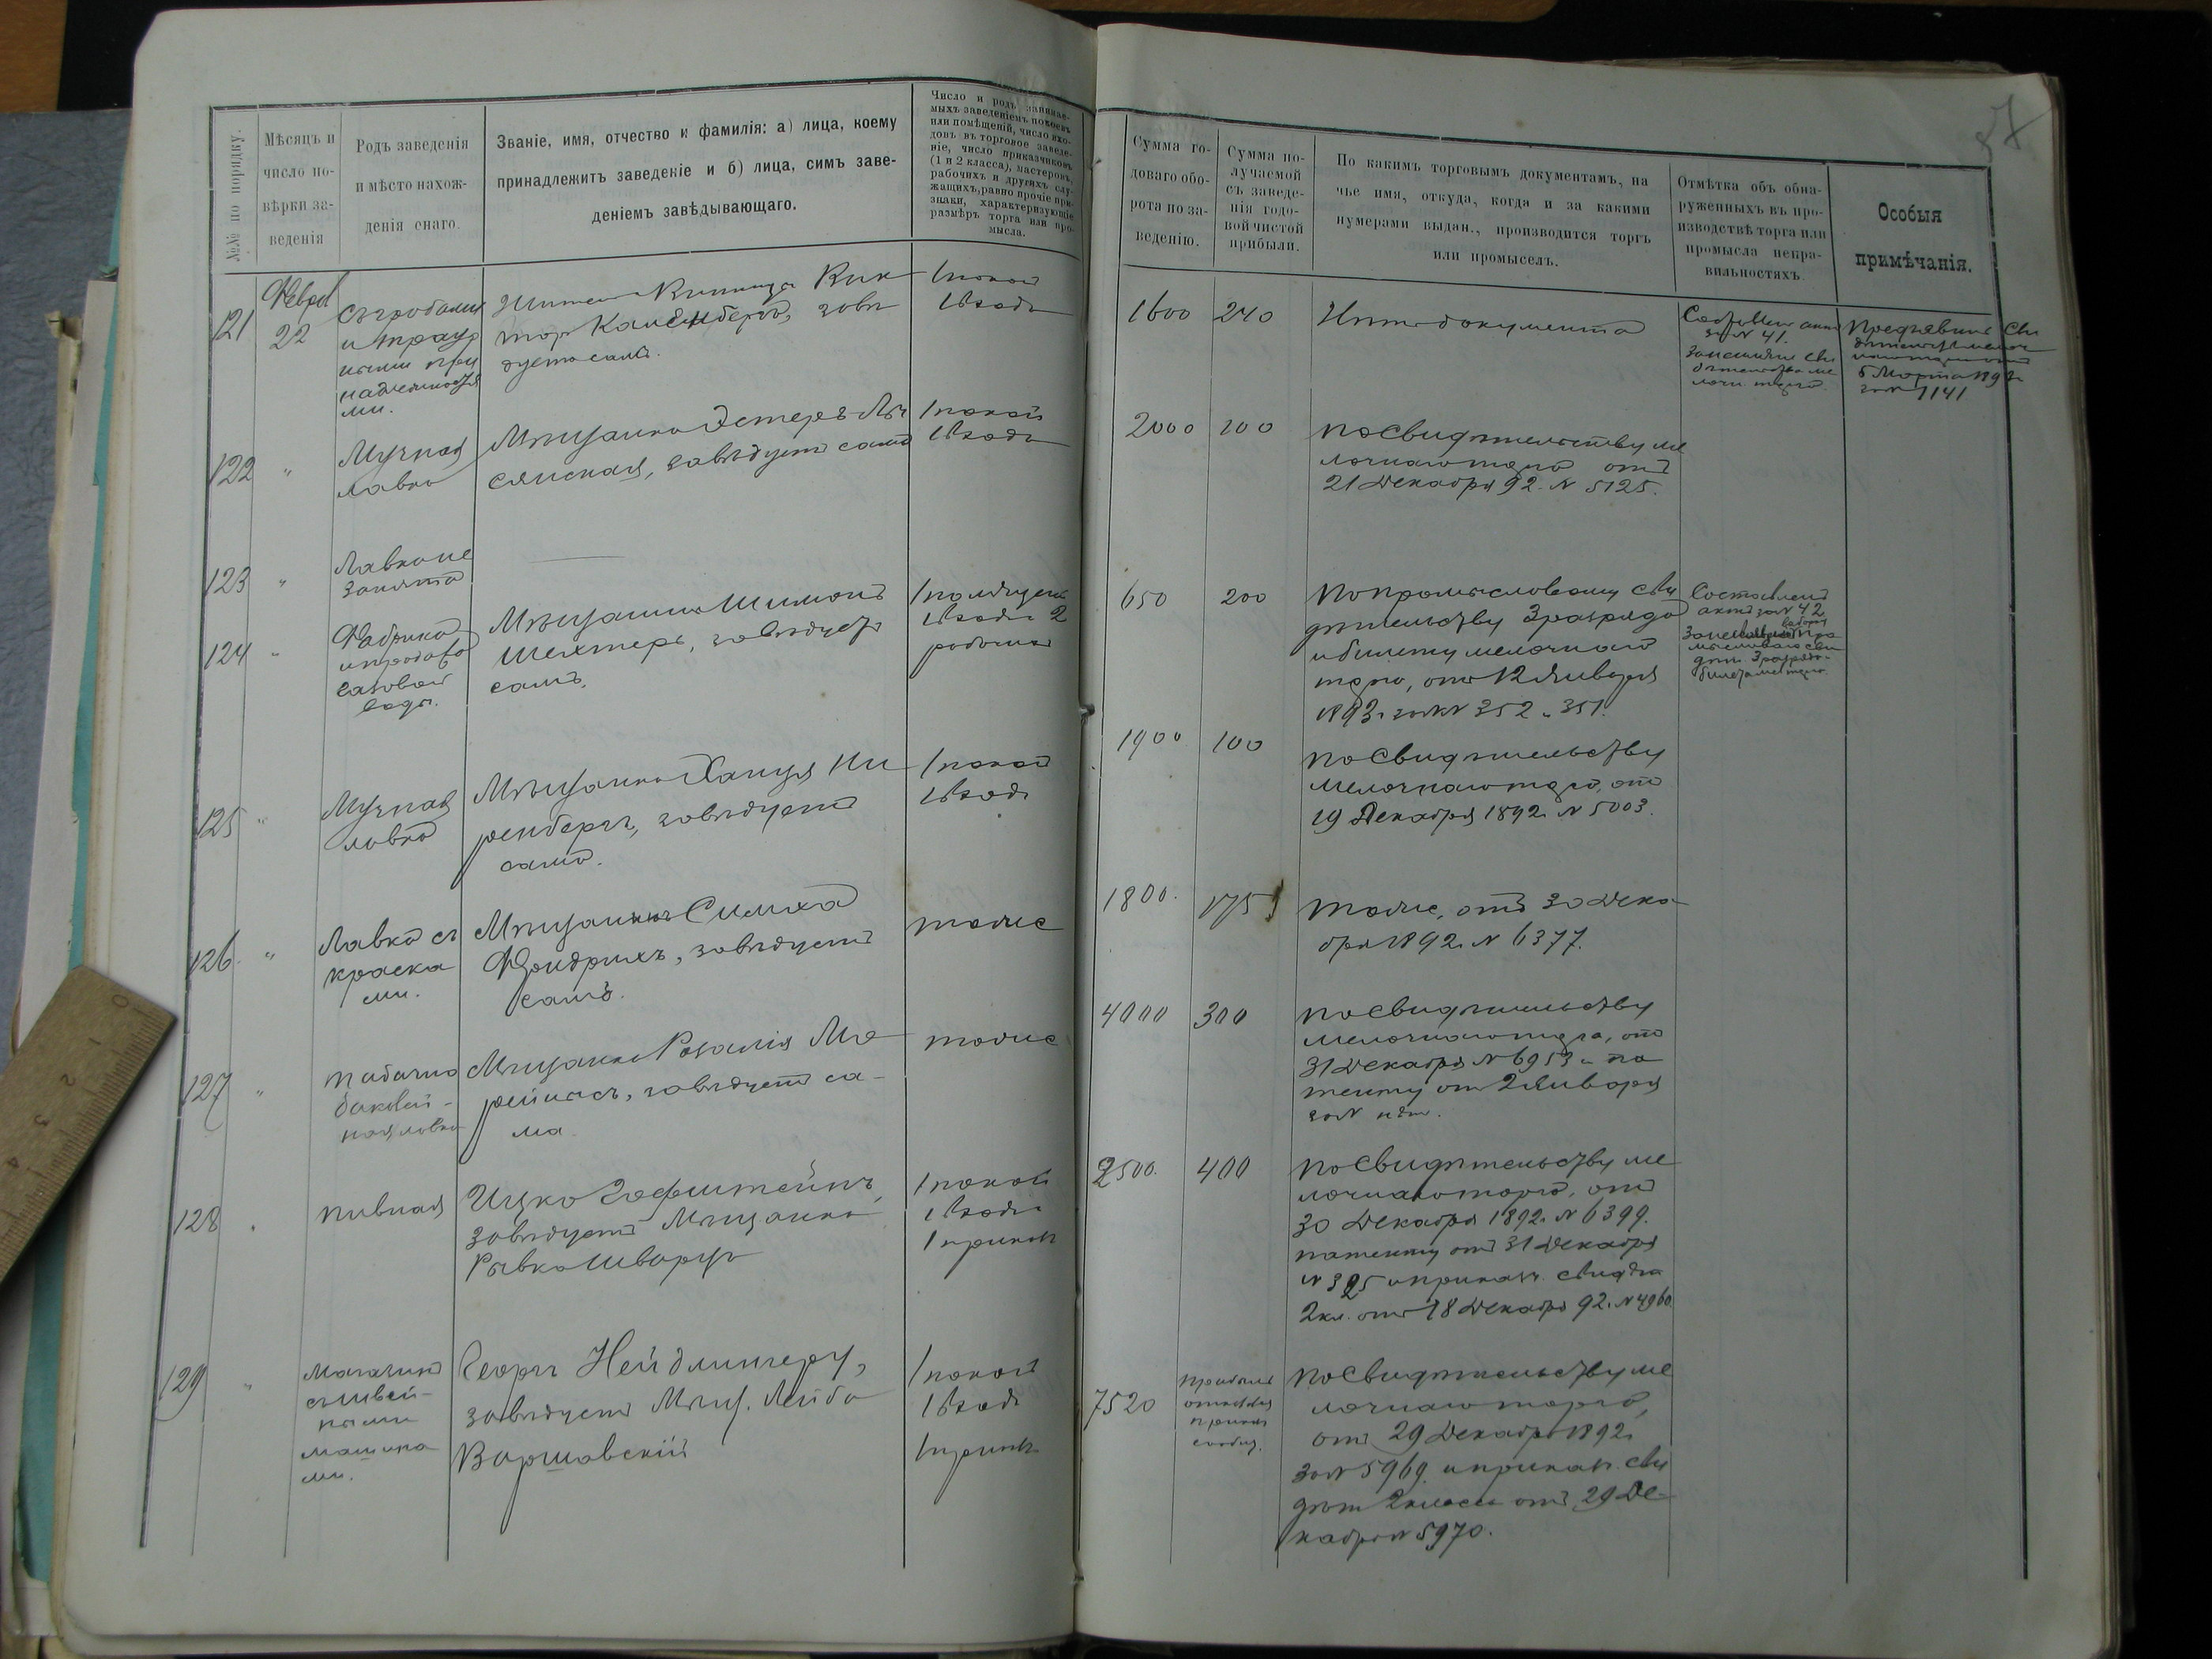 №№ по порядку.
Мѣсяцъ и
число по-
вѣрки за-
веденія
Родъ заведенія
и мѣсто нахож-
денія онаго.
Званіе, имя, отчество и фамилія: а) лица, коему
принадлежитъ заведеніе и б) лица, симъ заве-
деніемъ завѣдывающаго.
Число и родъ занимае-
мыхъ заведеніемъ покоевъ
или помѣщеній, число вхо-
довъ въ торговое заведе-
ніе, число приказчиковъ
(1 и 2 класса), мастеровъ,
рабочихъ и другихъ слу-
жащихъ, равно прочіе при-
знаки, характеризующіе
размѣръ торга или про-
мысла.
Сумма го-
доваго обо-
рота по за-
веденію.
Сумма по-
лучаемой
съ заведе-
нія годо-
вой чистой
прибыли.
По какимъ торговымъ документамъ, на
чье имя, откуда, когда и за какими
нумерами выдан., производится торгъ
или промыселъ.
Отмѣтка объ обна-
руженныхъ въ про-
изводствѣ торга или
промысла непра-
вильностяхъ.
Особыя
примѣчанія.
87
121
Феврал
22
Съ гробами
и траур
ными при
надлежностя
ми.
Вик
тор завѣ
дуетъ самъ.
1 покой
1 входъ
1600
240
Нѣтъ документа
акт
за № 41.
Предъявилъ сви
5 Марта 189
за № 1141
122
"
Мучная
лавка
Мѣщанка Эстеръ
завѣдуетъ сама
1 покой
1 входъ
2000
200
По свидѣтельству ме
лочнаго торга отъ
21 Декабря 92. № 5125.
123
"
Лавка не
занята
124
"
Фабрика
и продажа
газовой
воды.
Мѣщанинъ Шимонъ
Шехтеръ, завѣдуетъ
самъ.
1 помѣщен
1 входъ 2
рабочихъ
650
200
По промысловому сви
дѣтельству 3 разряда
и билету мелочнаго
торга, отъ 12 Января
1893 за №№ 352 и 351.
Составленъ
актъ за № 42
125
"
Мучная
лавка
Мѣщанка Ханця Ни
ренбергъ, завѣдуетъ
сама.
1 покой
1 входъ
1900
100
По свидѣтельству
мелочнаго торга, отъ
19 Декабря 1892 № 5003.
126
"
Лавка съ
краска
ми.
Мѣщанинъ Симха
Фридрихъ, завѣдуетъ
самъ.
тоже
1800.
175
Тоже, отъ 30 Дека
бря 1892. № 6377.
127
"
Табачно
бакалей-
ная лавка
Мѣщанка Розалія Ма
рейнасъ, завѣдуетъ са-
ма.
тоже
4000
300
По свидѣтельству
мелочнаго торга, отъ
31 Декабря № 6953 и па
тенту отъ 2 Января
за №
128
"
Пивная
Ицко Гофштейнъ,
завѣдуетъ Мѣщанка
Ривка Шварцъ
1 покой
1 входъ
1 приказ
2500.
400
По свидѣтельству ме
лочнаго торга, отъ
30 Декабря 1892. № 6399.
патенту отъ 31 Декабря
№ 325 и приказч. свидѣт
2 кл. отъ 18 Декабря 92. № 4960
129
"
Магазинъ
съ швей-
ными
машина
ми.
Георгъ Нейдлингеру,
завѣдуетъ Мѣщ. Лейба
Варшавскій
1 покой
1 входъ
1 приказ
7520
По свидѣтельству ме
лочнаго торга,
отъ 29 Декабря 1892
за № 5969. и приказ. сви
дѣт 2 класса отъ 29 Де-
кабря № 5970.